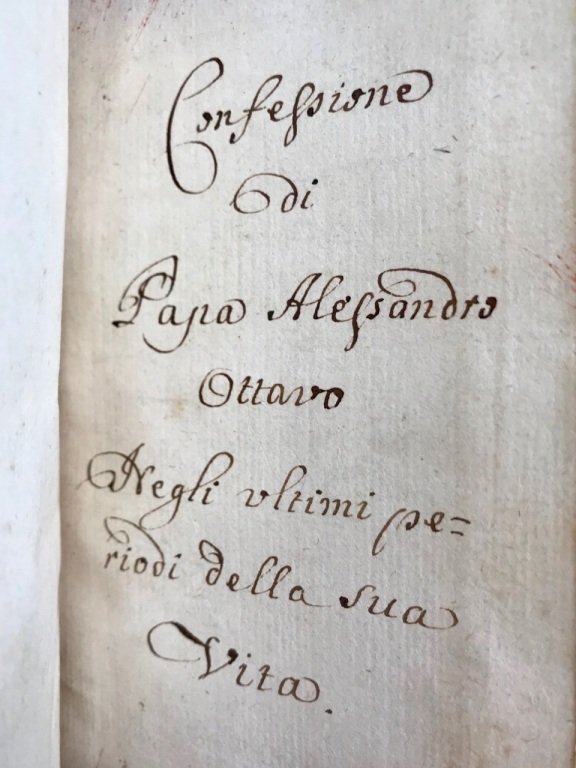 Confessione
di
Papa Alessandro
Ottavo
Negli ultimi pe=
riodi della sua
Vita.